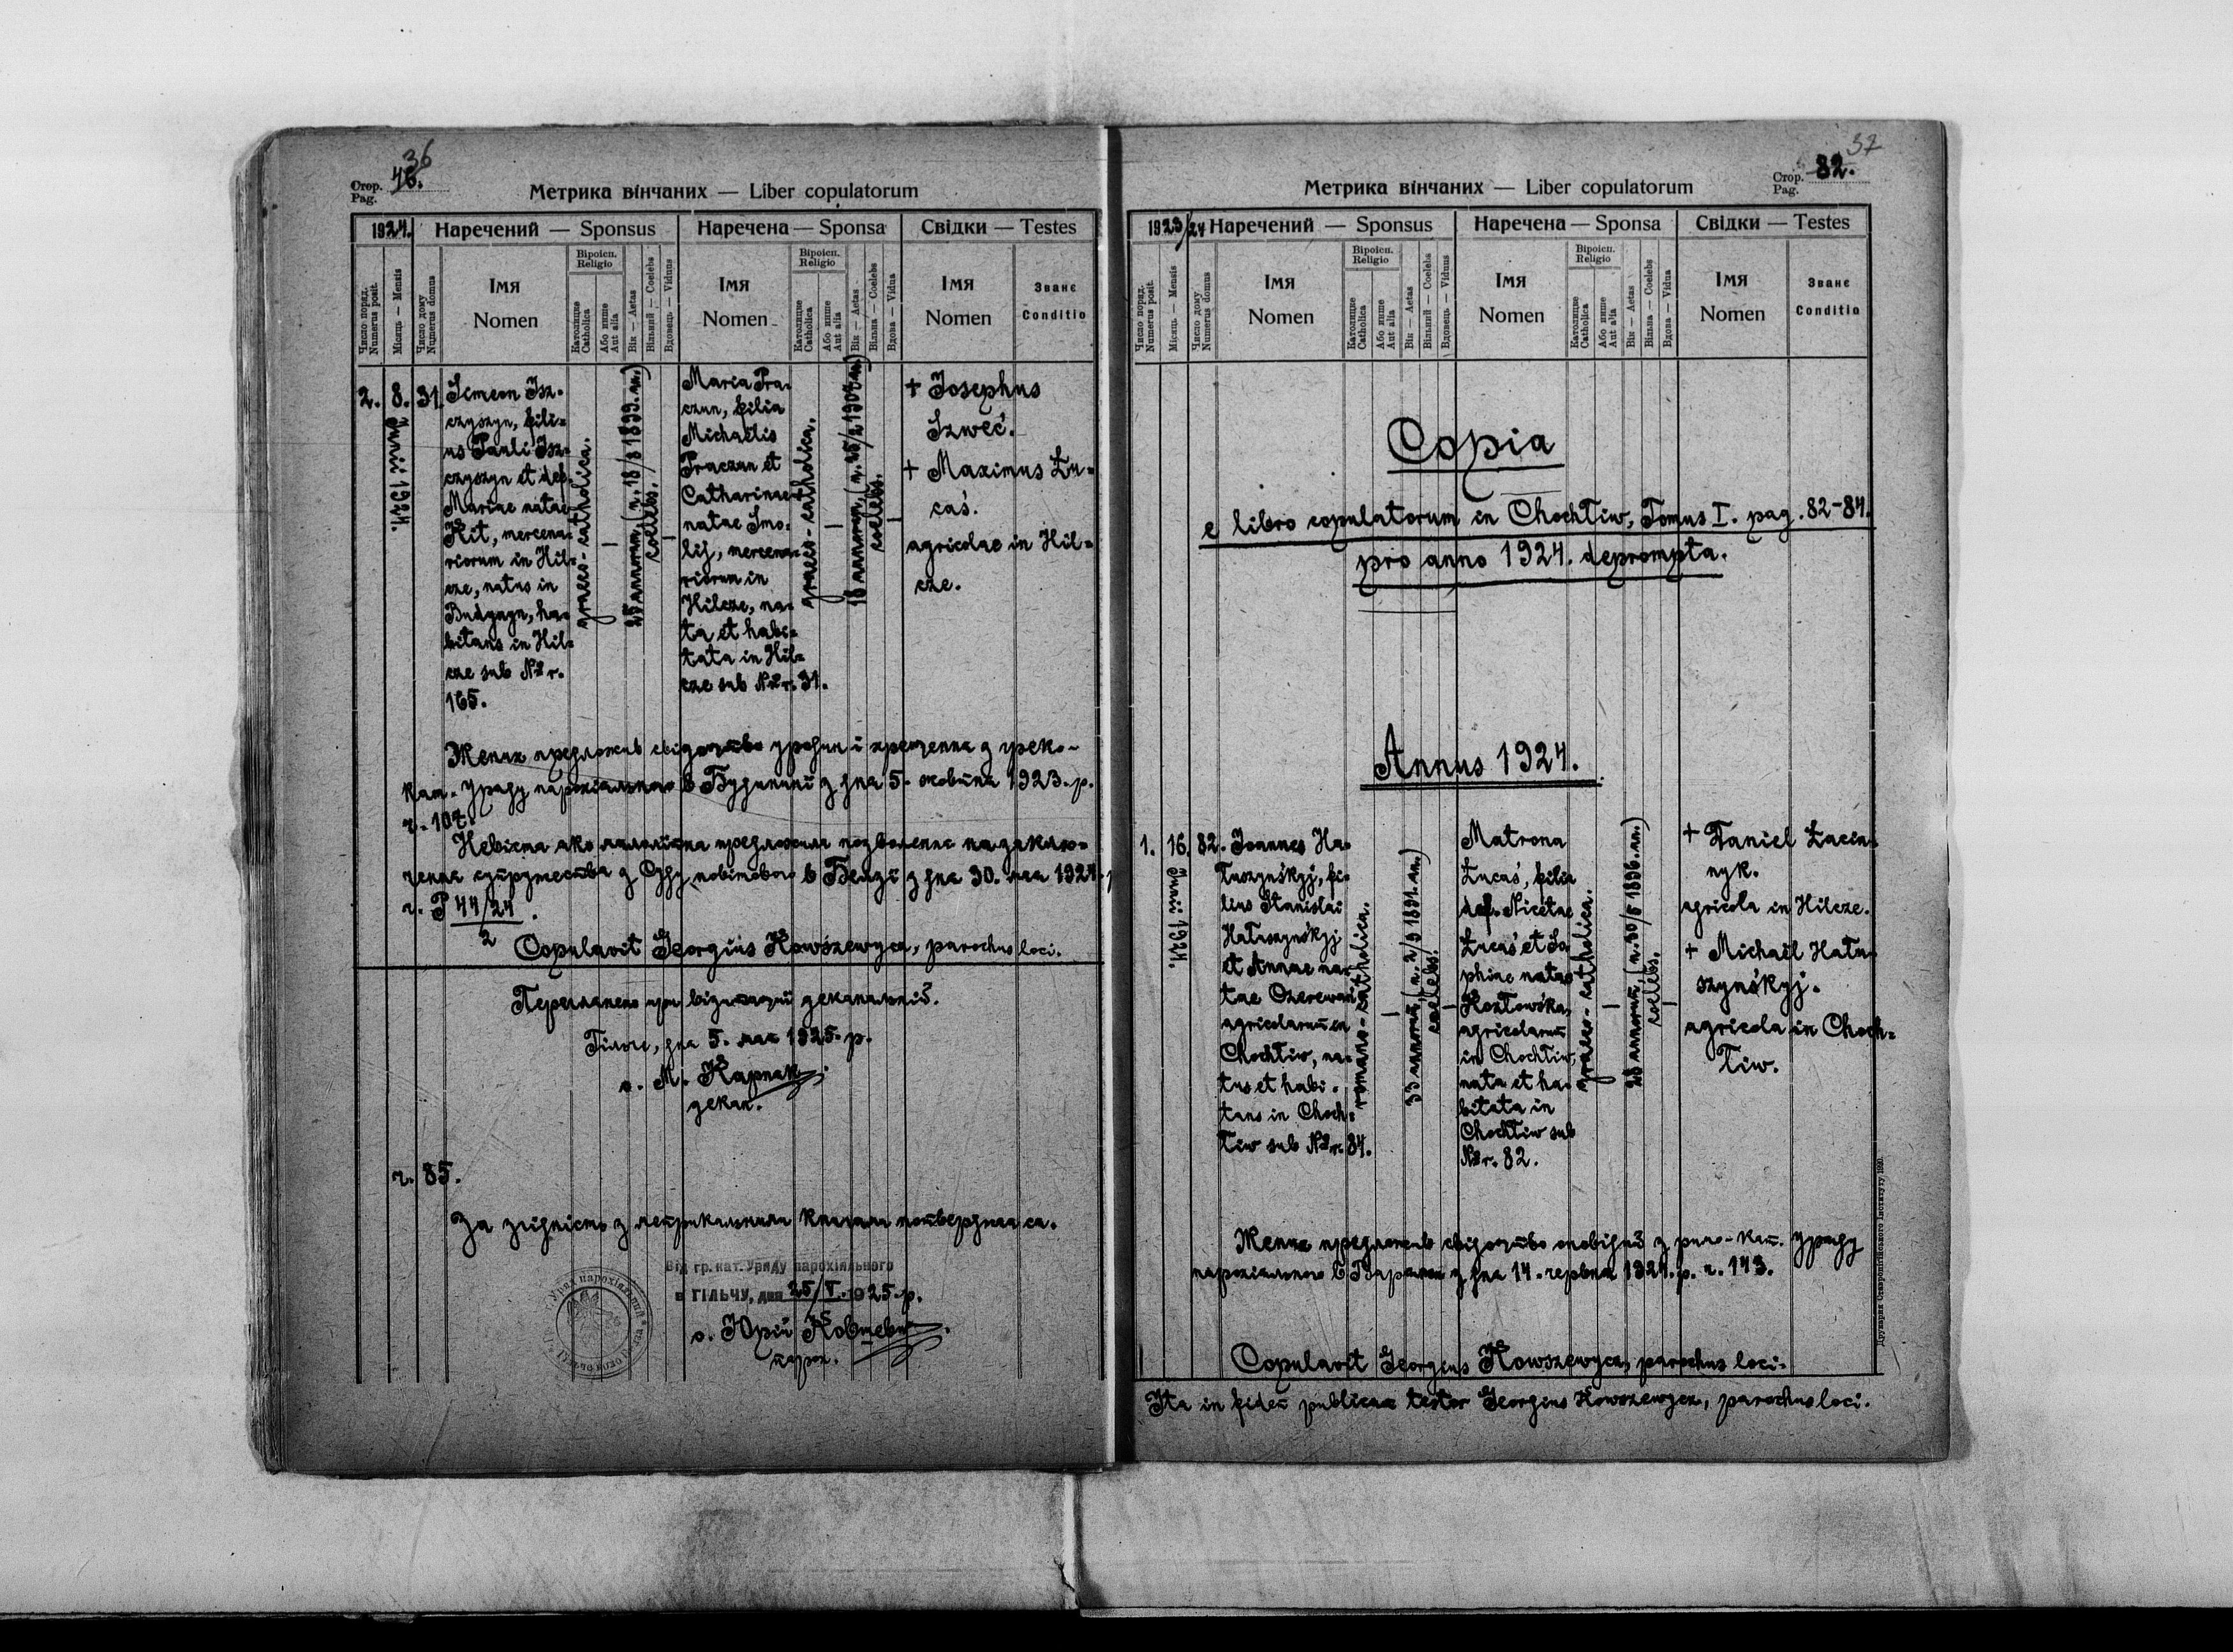 36
Стор. 46.
Pag.
Метрика вінчаних — Liber copulatorum
1924.
Наречений — Sponsus
Наречена — Sponsa
Свідки — Testes
Число поряд.
Numerus posit.
Місяць — Mensis
Число дому
Numerus domus
Імя
Nomen
Віроісп.
Religio
Католицке
Catholica
Або инше
Aut alia
Вік — Aetas
Вільний — Coelebs
Вдовець — Viduus
Імя
Nomen
Віроісп.
Religio
Католицке
Catholica
Або инше
Aut alia
Вік — Aetas
Вільна — Coelebs
Вдова — Vidua
Імя
Nomen
Званє
Conditio
2.
8.
Junii 1924.
31.
Simeon Isz-
czyszyn, fili-
us Pauli Isz-
czyszyn et def.
Mariae natae
Kit, mercena-
riorum in Hil-
cze, natus in
Budynyn, ha-
bitans in Hil-
cze sub Nr.
165.
graeco-catholica.
25 annorum, (n. 18/8 1899. an.)
coelebs.
Maria Tra-
czun, filia
Michaëlis
Traczun et
Catharinae
natae Smo-
lij, mercena-
riorum in
Hilcze, na-
ta et habi-
tata in Hil-
cze sub Nr. 31.
graeco-catholica.
coelebs.
+ Josephus
Szweć.
+ Maximus Łu-
caś.
agricolae in Hil-
cze.
Жених предложив свідоцтво уродин і хрещення з греко-
кат. Уряду парохіяльного в Будинині з дня 5. жовтня 1923. р.
ч. 107.
Невіста яко малолітна предложила позволення на заклю-
чення супружества з Суду повітового в Белзі з дня 30. мая 1924. р.
ч. P 44/24
2
Copulavit Georgius Kowszewycz, parochus loci.
Переглянено при візитації деканальній.
Гільче, дня 5. мая 1925. р.
о. М. Карпяк
декан.
ч. 85.
За згідність з метрикальними книгами потверджаєся.
Від гр. кат. Уряду парохіяльного
в ГІЛЬЧУ, дня 25/V. 1925. р.
о. Юрій Ковшевич
парох.
37
Стор. 82.
Pag.
Метрика вінчаних — Liber copulatorum
1923/24
Наречений — Sponsus
Наречена — Sponsa
Свідки — Testes
Число поряд.
Numerus posit.
Місяць — Mensis
Число дому
Numerus domus
Імя
Nomen
Віроісп.
Religio
Католицке
Catholica
Або инше
Aut alia
Вік — Aetas
Вільний — Coelebs
Вдовець — Viduus
Імя
Nomen
Віроісп.
Religio
Католицке
Catholica
Або инше
Aut alia
Вік — Aetas
Вільна — Coelebs
Вдова — Vidua
Імя
Nomen
Званє
Conditio
Copia
e libro copulatorum in Chochłiw, Tomus I. pag. 82-84.
pro anno 1924. deprompta.
Annus 1924.
1.
16.
Junii 1924.
82.
Joannes Ha-
łuszynśkyj, fi-
lius Stanislai
Hałuszynśkyj
et Annae na-
tae
agricolarum in
Chochłiw, na-
tus et habi-
tans in Choch-
łiw sub Nr. 84.
romano-catholica.
33 annorum, (n. 2/3 1891. an.)
coelebs.
Matrona
Łucaś, filia
def. Nicetae
Łucaś et So-
phiae natae
Kozłowska,
agricolarum
in Chochłiw,
nata et ha-
bitata in
Chochłiw sub
Nr. 82.
graeco-catholica.
28 annorum, (n. 30/5 1896. an.)
coelebs.
+ Daniel Łacin-
nyk.
agricola in Hilcze.
+ Michaël Hału-
szynśkyj.
agricola in Choch-
łiw.
Жених предложив свідоцтво оповідий з римо-кат. Уряду
парохіяльного в Варяжи з дня 14. червня 1924. р. ч. 143.
Copulavit Georgius Kowszewycz, parochus loci.
Ita in fidem publicam testor Georgius Kowszewycz, parochus loci.
Друкарня Ставропігійського Інститута, 1920.